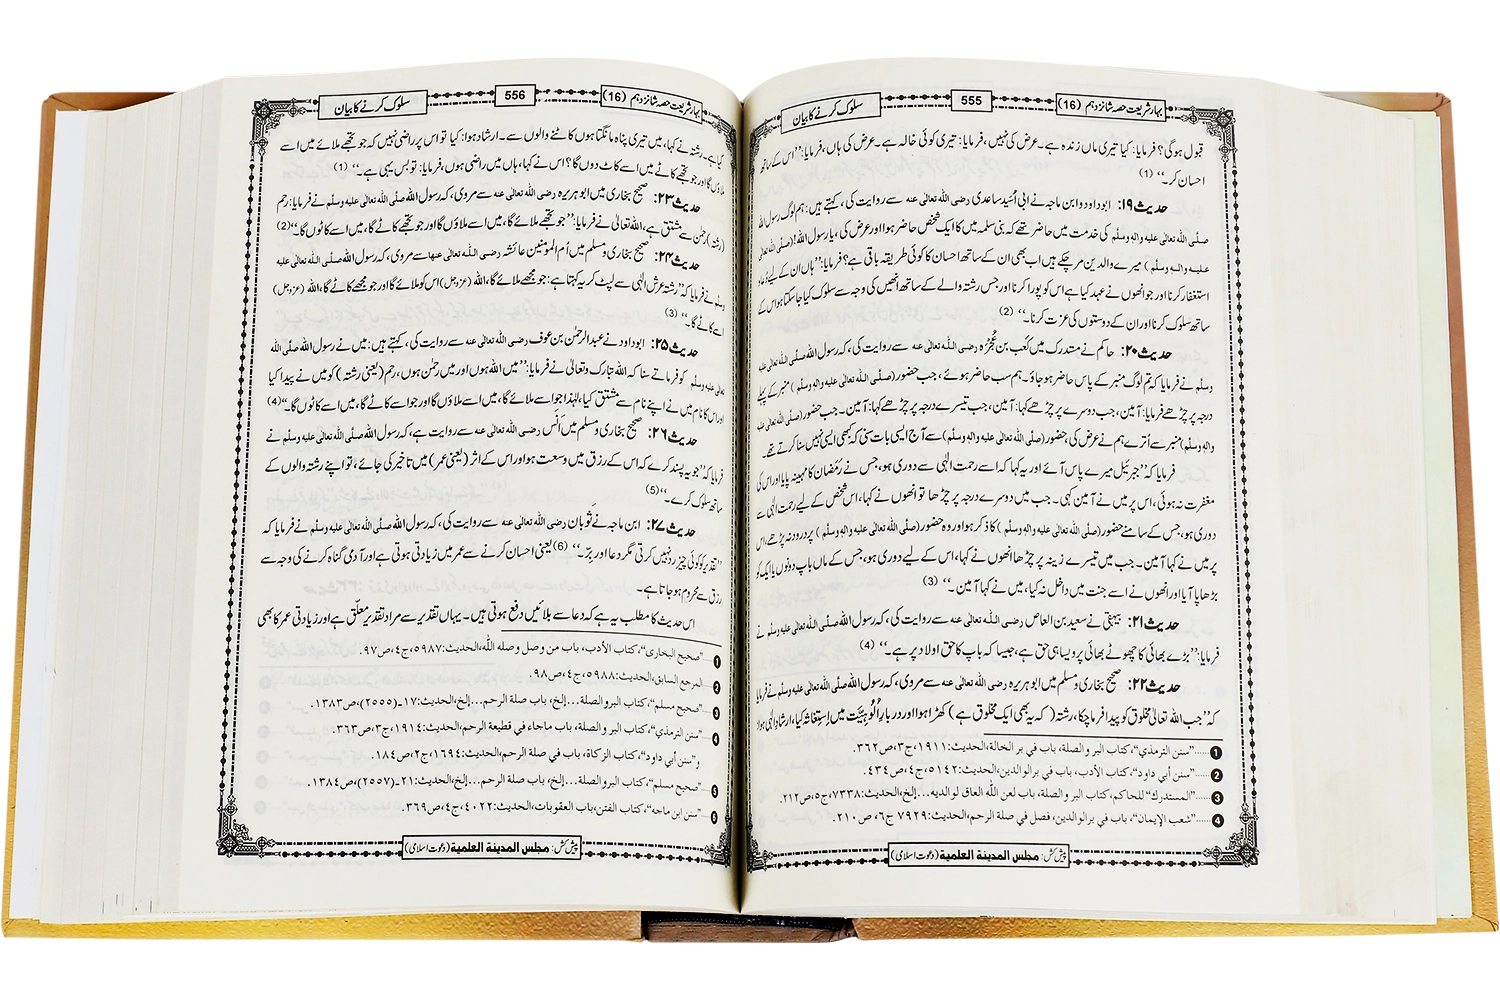 بہار شریعت حصہ شانزدہم (16)
555
سلوک کرنے کا بیان
قبول ہوگی؟ فرمایا: کیا تیری ماں زندہ ہے۔ عرض کی نہیں، فرمایا: تیری کوئی خالہ ہے۔ عرض کی ہاں، فرمایا: ’’اس کے ساتھ
احسان کر۔‘‘ (1)
حدیث ۱۹: ابو داود و ابن ماجہ نے ابی اُسید ساعدی رضی اللہ تعالٰی عنہ سے روایت کی، کہتے ہیں: ہم لوگ رسول اللہ
صلَّی اللہ تعالٰی علیہ واٰلہٖ وسلَّم کی خدمت میں حاضر تھے کہ بنی سلمہ میں کا ایک شخص حاضر ہوا اور عرض کی، یارسول اللہ! (صلَّی اللہ تعالٰی
علیہ واٰلہٖ وسلَّم) میرے والدین مر چکے ہیں اب بھی ان کے ساتھ احسان کا کوئی طریقہ باقی ہے؟ فرمایا: ’’ہاں ان کے لیے دُعا و
استغفار کرنا اور جو انھوں نے عہد کیا ہے اس کو پورا کرنا اور جس رشتہ والے کے ساتھ انھیں کی وجہ سے سلوک کیا جا سکتا ہو اس کے
ساتھ سلوک کرنا اور ان کے دوستوں کی عزت کرنا۔‘‘ (2)
حدیث ۲۰: حاکم نے مستدرک میں کعب بن عُجْرَہ رضی اللہ تعالٰی عنہ سے روایت کی، کہ رسول اللہ صلَّی اللہ تعالٰی علیہ
وسلَّم نے فرمایا کہ تم لوگ منبر کے پاس حاضر ہو جاؤ۔ ہم سب حاضر ہوئے، جب حضور (صلَّی اللہ تعالٰی علیہ واٰلہٖ وسلَّم) منبر کے پہلے
درجہ پر چڑھے فرمایا: آمین، جب دوسرے پر چڑھے کہا: آمین، جب تیسرے درجہ پر چڑھے کہا: آمین۔ جب حضور (صلَّی اللہ تعالٰی علیہ
واٰلہٖ وسلَّم) منبر سے اُترے ہم نے عرض کی، حضور (صلَّی اللہ تعالٰی علیہ واٰلہٖ وسلَّم) سے آج ایسی بات سنی کہ کبھی ایسی نہیں سنا کرتے تھے۔
فرمایا کہ ’’جبرئیل میرے پاس آئے اور یہ کہا کہ اسے رحمت الٰہی سے دوری ہو، جس نے رمضان کا مہینہ پایا اور اس کی
مغفرت نہ ہوئی، اس پر میں نے آمین کہی۔ جب میں دوسرے درجہ پر چڑھا تو انھوں نے کہا، اس شخص کے لیے رحمت الٰہی سے
دوری ہو، جس کے سامنے حضور (صلَّی اللہ تعالٰی علیہ واٰلہٖ وسلَّم) کا ذکر ہو اور وہ حضور (صلَّی اللہ تعالٰی علیہ واٰلہٖ وسلَّم) پر درود نہ پڑھے، اس
پر میں نے کہا آمین۔ جب میں تیسرے زینہ پر چڑھا انھوں نے کہا، اس کے لیے دوری ہو، جس کے ماں باپ دونوں یا ایک کو
بڑھاپا آیا اور انھوں نے اسے جنت میں داخل نہ کیا، میں نے کہا آمین۔‘‘ (3)
حدیث ۲۱: بیہقی نے سعید بن العاص رضی اللہ تعالٰی عنہ سے روایت کی، کہ رسول اللہ صلَّی اللہ تعالٰی علیہ وسلَّم نے
فرمایا: ’’بڑے بھائی کا چھوٹے بھائی پر ویسا ہی حق ہے، جیسا کہ باپ کا حق اولاد پر ہے۔‘‘ (4)
حدیث ۲۲: صحیح بخاری و مسلم میں ابو ہریرہ رضی اللہ تعالٰی عنہ سے مروی، کہ رسول اللہ صلَّی اللہ تعالٰی علیہ وسلَّم نے فرمایا
کہ ’’جب اللہ تعالیٰ مخلوق کو پیدا فرما چکا، رشتہ (کہ یہ بھی ایک مخلوق ہے) کھڑا ہوا اور دربار اُلُوہِیَّت میں اِستِغاثہ کیا، ارشاد الٰہی ہوا:
1 ......’’سنن الترمذي‘‘، کتاب البر والصلة، باب في بر الخالة، الحدیث: ۱۹۱۱، ج۳، ص۳۶۲.
2 ......’’سنن أبي داود‘‘، کتاب الأدب، باب في بر الوالدین، الحدیث: ۵۱۴۲، ج۴، ص۴۳۴.
3 ......’’المستدرك‘‘ للحاکم، کتاب البر والصلة، باب لعن اللّٰه العاق لوالدیه... إلخ، الحدیث: ۷۳۳۸، ج۵، ص۲۱۲.
4 ......’’شعب الإیمان‘‘، باب في بر الوالدین، فصل في صلة الرحم، الحدیث: ۷۹۲۹، ج۶، ص۲۱۰.
پیش کش: مجلس المدینة العلمیة (دعوت اسلامی)
بہار شریعت حصہ شانزدہم (16)
556
سلوک کرنے کا بیان
کیا ہے۔ رشتہ نے کہا، میں تیری پناہ مانگتا ہوں کاٹنے والوں سے۔ ارشاد ہوا: کیا تو اس پر راضی نہیں کہ جو تجھے ملائے میں اسے
ملاؤں گا اور جو تجھے کاٹے میں اسے کاٹ دوں گا؟ اس نے کہا، ہاں میں راضی ہوں، فرمایا: تو بس یہی ہے۔‘‘ (1)
حدیث ۲۳: صحیح بخاری میں ابو ہریرہ رضی اللہ تعالٰی عنہ سے مروی، کہ رسول اللہ صلَّی اللہ تعالٰی علیہ وسلَّم نے فرمایا: رحم
(رشتہ) رحمٰن سے مشتق ہے، اللہ تعالیٰ نے فرمایا: ’’جو تجھے ملائے گا، میں اسے ملاؤں گا اور جو تجھے کاٹے گا، میں اسے کاٹوں گا۔‘‘ (2)
حدیث ۲۴: صحیح بخاری و مسلم میں اُم المومنین عائشہ رضی اللہ تعالٰی عنہا سے مروی، کہ رسول اللہ صلَّی اللہ تعالٰی علیہ
وسلَّم نے فرمایا کہ ’’رشتہ عرش الٰہی سے لپٹ کر یہ کہتا ہے: جو مجھے ملائے گا، اللہ (عزوجل) اس کو ملائے گا اور جو مجھے کاٹے گا، اللہ (عزوجل)
اسے کاٹے گا۔‘‘ (3)
حدیث ۲۵: ابو داود نے عبدالرحمٰن بن عوف رضی اللہ تعالٰی عنہ سے روایت کی، کہتے ہیں: میں نے رسول اللہ صلَّی اللہ
تعالٰی علیہ وسلَّم کو فرماتے سنا کہ اللہ تبارک وتعالیٰ نے فرمایا: ’’میں اللہ ہوں اور میں رحمٰن ہوں، رحم (یعنی رشتہ) کو میں نے پیدا کیا
اور اس کا نام میں نے اپنے نام سے مشتق کیا، لہٰذا جو اسے ملائے گا، میں اسے ملاؤں گا اور جو اسے کاٹے گا، میں اسے کاٹوں گا۔‘‘ (4)
حدیث ۲۶: صحیح بخاری و مسلم میں انَس رضی اللہ تعالٰی عنہ سے روایت ہے، کہ رسول اللہ صلَّی اللہ تعالٰی علیہ وسلَّم نے
فرمایا کہ ’’جو یہ پسند کرے کہ اس کے رزق میں وسعت ہو اور اس کے اثر (یعنی عمر) میں تاخیر کی جائے، تو اپنے رشتہ والوں کے
ساتھ سلوک کرے۔‘‘ (5)
حدیث ۲۷: ابن ماجہ نے ثَوبان رضی اللہ تعالٰی عنہ سے روایت کی، کہ رسول اللہ صلَّی اللہ تعالٰی علیہ وسلَّم نے فرمایا کہ
’’تقدیر کو کوئی چیز رد نہیں کرتی مگر دعا اور بِرّ۔‘‘ (6) یعنی احسان کرنے سے عمر میں زیادتی ہوتی ہے اور آدمی گناہ کرنے کی وجہ سے
رزق سے محروم ہو جاتا ہے۔
اس حدیث کا مطلب یہ ہے کہ دعا سے بلائیں دفع ہوتی ہیں۔ یہاں تقدیر سے مراد تقدیر معلّق ہے اور زیادتی عمر کا بھی
1 ......’’صحیح البخاري‘‘، کتاب الأدب، باب من وصل وصله اللّٰه، الحدیث: ۵۹۸۷، ج۴، ص۹۷.
2 ......المرجع السابق، الحدیث: ۵۹۸۸، ج۴، ص۹۸.
3 ......’’صحیح مسلم‘‘، کتاب البر والصلة... إلخ، باب صلة الرحم... إلخ، الحدیث: ۱۷ـ(۲۵۵۵)، ص۱۳۸۳.
4 ......’’سنن الترمذي‘‘، کتاب البر والصلة، باب ماجاء في قطیعة الرحم، الحدیث: ۱۹۱۴، ج۳، ص۳۶۳.
و’’سنن أبي داود‘‘، کتاب الزکاة، باب في صلة الرحم، الحدیث: ۱۶۹۴، ج۲، ص۱۸۴.
5 ......’’صحیح مسلم‘‘، کتاب البر والصلة... إلخ، باب صلة الرحم... إلخ، الحدیث: ۲۱ـ(۲۵۵۷)، ص۱۳۸۴.
6 ......’’سنن ابن ماجه‘‘، کتاب الفتن، باب العقوبات، الحدیث: ۴۰۲۲، ج۴، ص۳۶۹.
پیش کش: مجلس المدینة العلمیة (دعوت اسلامی)